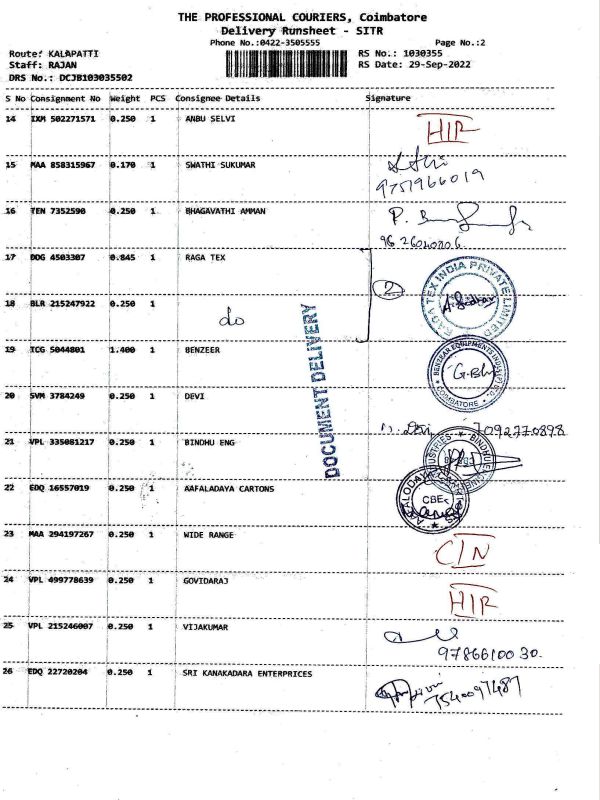 THE PROFESSIONAL COURIERS, Coimbatore
Delivery Runsheet - SITR
Phone No.:0422-3505555 Page No.:2
Route: KALAPATTI RS No.: 1030355
Staff: RAJAN RS Date: 29-Sep-2022
DRS No.: DCJB103035502
S No Consignment No Weight PCS Consignee Details Signature
14 IXM 502271571 0.250 1 ANBU SELVI
15 MAA 858315967 0.170 1 SWATHI SUKUMAR
9751966019
16 TEN 7352590 0.250 1 BHAGAVATHI AMMAN
17 DDG 4503307 0.845 1 RAGA TEX
2
RAGA TEX INDIA PRIVATE LIMITED
18 BLR 215247922 0.250 1 do
DOCUMENT DELIVERY
19 TCG 5044801 1.400 1 BENZEER
COIMBATORE
20 SVM 3784249 0.250 1 DEVI
7092770898
21 VPL 335081217 0.250 1 BINDHU ENG
22 EDQ 16557019 0.250 1 AAFALADAYA CARTONS
CBE
23 MAA 294197267 0.250 1 WIDE RANGE
C/N
24 VPL 499778639 0.250 1 GOVIDARAJ
25 VPL 215246007 0.250 1 VIJAKUMAR
9786610030.
26 EDQ 22720204 0.250 1 SRI KANAKADARA ENTERPRICES
7540097487